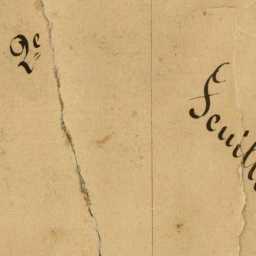 2e
Feuille